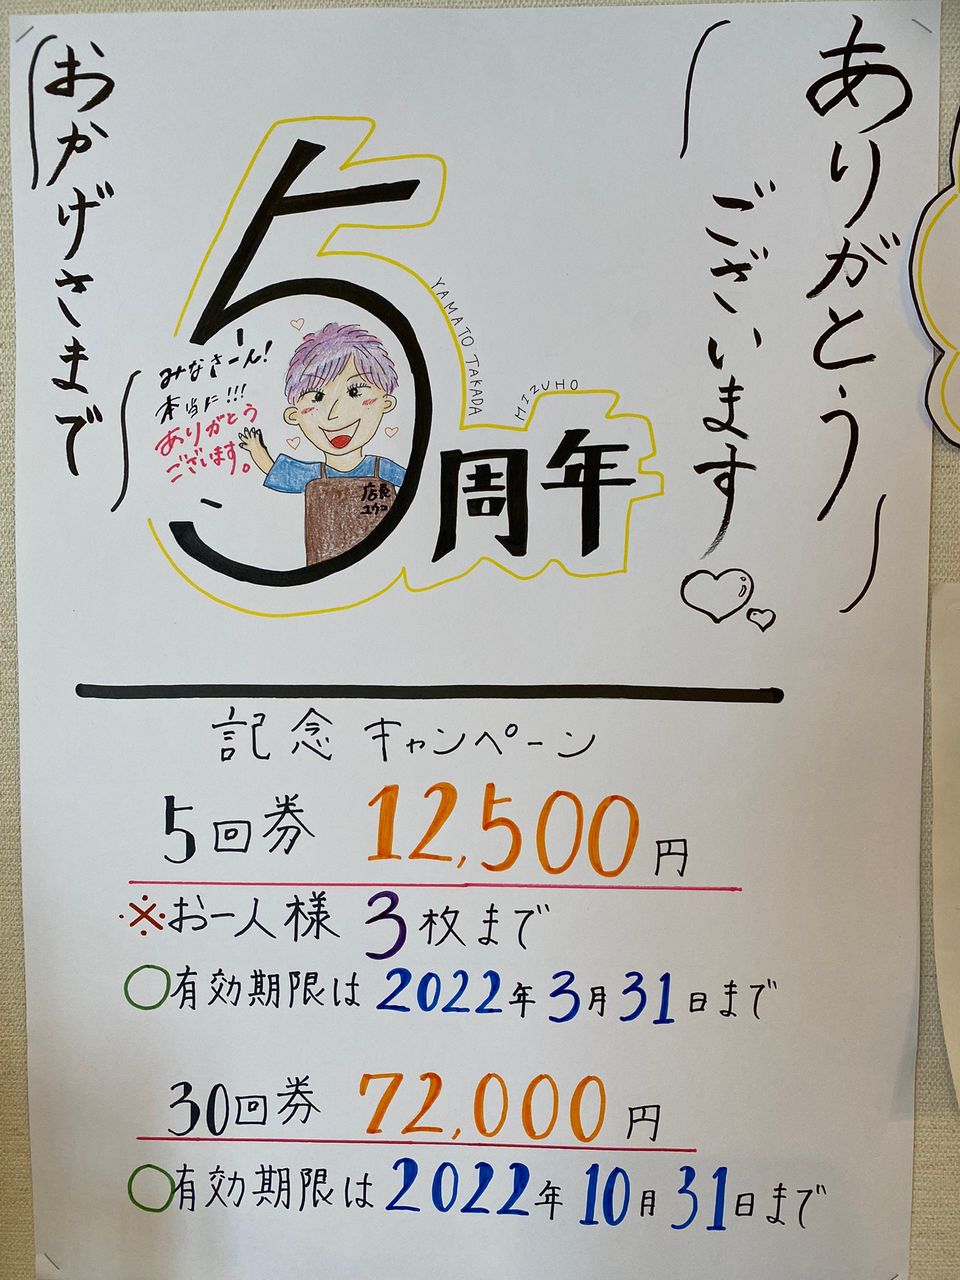 おかげさまで
5周年
YAMATO TAKADA
MIZUHO
みなさーん!
本当に!!!
ありがとう
ございます。
店長
ユウコ
ありがとう
ございます
記念キャンペーン
5回券 12,500円
※お一人様 3枚まで
○有効期限は 2022年3月31日まで
30回券 72,000円
○有効期限は 2022年10月31日まで